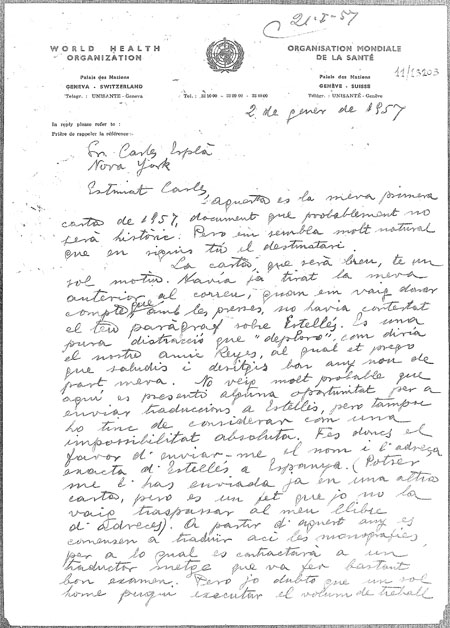 21-I-57
WORLD HEALTH
ORGANIZATION
ORGANISATION MONDIALE
DE LA SANTÉ
Palais des Nations
GENEVA - SWITZERLAND
Telegr.: UNISANTÉ-Geneva
Tél.:
Palais des Nations
GENÈVE - SUISSE
Télégr.: UNISANTÉ-Genève
11/13203
2 de gener de 1957
In reply please refer to:
Prière de rappeler la référence:
Sr. Carles Esplà
Nova York
Estimat Carles,
Aquesta es la meva primera
carta de 1957, document que probablement no
sera històric. Pero em sembla molt natural
que en siguis tu el destinatari.
La carta, que serà breu, te un
sol motiu. Havia ja tirat la meva
anterior al correu, quan em vaig donar
compte que amb les presses, no havia contestat
el teu paràgraf sobre Estellés. Es una
pura distracció que "deploro", com diria
el nostre amic Reyes, al qual et prego
que saludis i desitgis bon any nou de
part meva. No veig molt probable que
aquí es presenti alguna oportunitat per a
enviar traduccions a Estellés, pero tampoc
ho tinc de considerar com una
impossibilitat absoluta. Fes doncs el
favor d'enviar-me el nom i l'adreça
exacta d'Estellés a Espanya. (Potser
me l'has enviada ja en una altra
carta, pero es un fet que jo no la
vaig traspassar al meu llibre
d'adreces). A partir d'aquest any es
comensen a traduir ací les monografies,
per a lo qual es contractarà a un
traductor metge que va fer bastant
bon examen. Pero jo dubto que un sol
home pugui executar el volum de treball